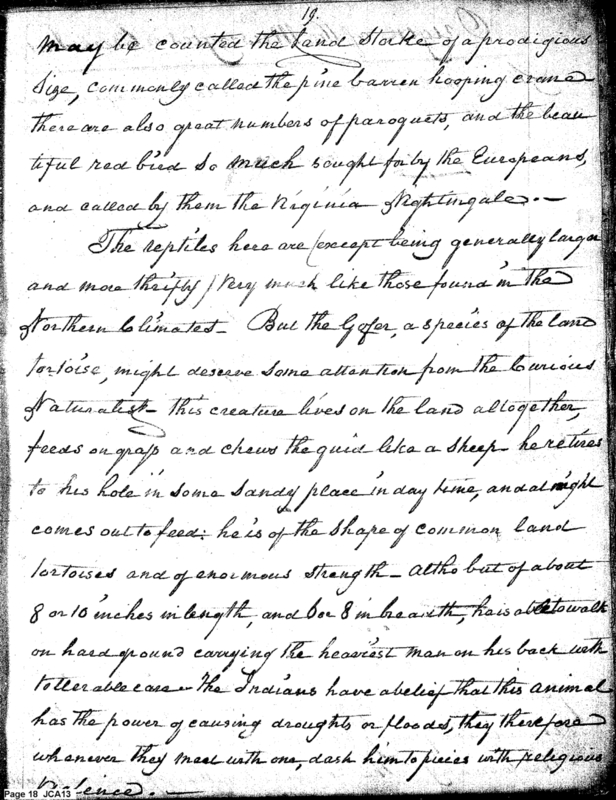 19.
may be counted the Land Storke of a prodigious
size, commonly called the pine barren hooping crane
there are also great numbers of paroquets, and the beau
tiful red bird so much sought for by the Europeans,
and called by them the Virginia Nightingale. —
The reptiles here are (except being generally larger
and more thrifty) very much like those found in the
Northern Climates — But the Gofer, a species of the land
tortoise, might deserve some attention from the Curious
Naturalist — this creature lives on the land altogether,
feeds on grass and chews the quid like a sheep — he retires
to his hole in some sandy place in day time, and at night
comes out to feed: he is of the shape of common land
tortoises and of enormous strength — altho but of about
8 or 10 inches in length, and 6 or 8 in breadth, he is able to walk
on hard ground carrying the heaviest man on his back with
tollerable ease — The Indians have a belief that this animal
has the power of causing droughts or floods, they therefore
whenever they meet with one, dash him to pieces with religious
violence. —
Page 18 JCA13